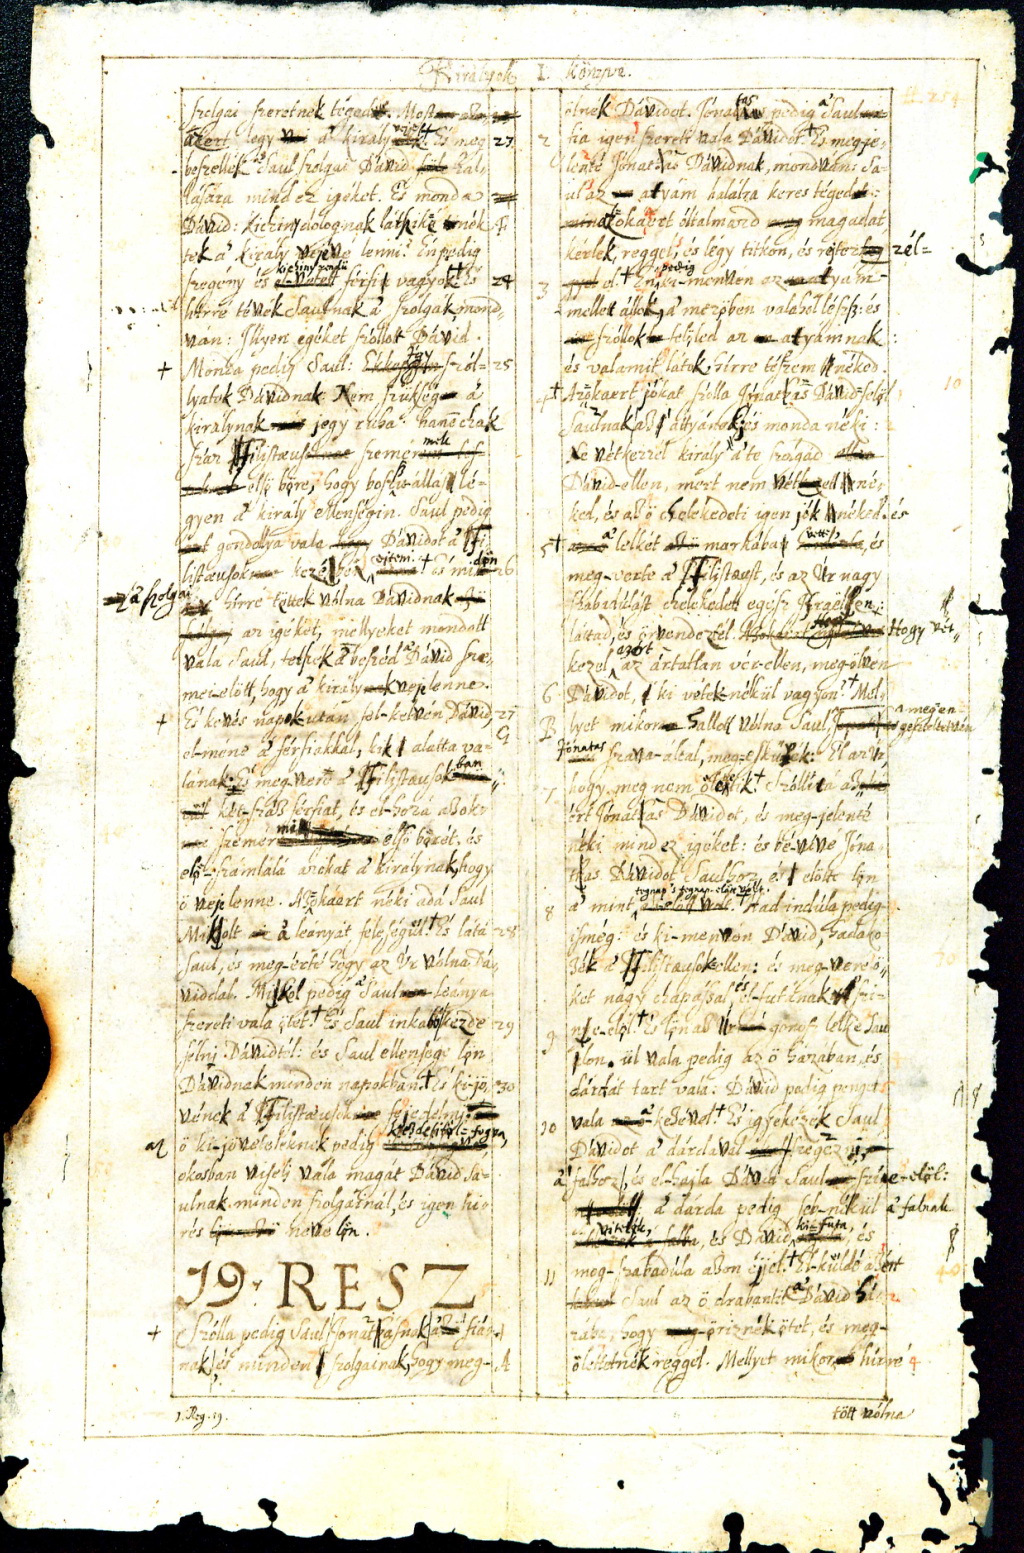 Királyok I. könyve.
szolgai szeretnek téged
azért légy a' király veje. És meg 23
beszellék a' Saul szolgai Dávid hal-
lására mind ez igéket. És monda
Dávid: kicziny dolognak láttzik é néktek
a' király vejévé lenni? Én pedig
szegény és kicziny rendü férfiu vagyok. És 24
hirré tévék Saulnak a' szolgák mond-
ván: Illyen igéket szóllott Dávid.
Monda pedig Saul: így szól- 25
lyatok Dávidnak: Nem szükség a'
királynak jegy ruha: hanem csak
száz Filistaeusok szemérmek
első bőre, hogy bosszú-állás lé-
gyen a' király ellenségin. Saul pedig
gondolya vala Dávidot a' Fi-
listaeusok kezébe ejteni. És midőn 26
a' szolgai hirré töttek vólna Dávidnak
az igéket, mellyeket mondott
vala Saul, tetzék a' beszéd Dávid sze-
mei-előtt, hogy a' király veje lenne.
És kevés napok-után fel-kelvén Dávid, 27
el-mene a' férfiakkal, kik alatta va-
lának: És meg-veré a' Filistaeusokban
két-száz férfiat, és el-hozá azok-
szemérmek első bőrét, és
elő-számlálá azokat a' királynak, hogy
ő veje lenne. Azokáért néki adá Saul
Mikolt a' leányát feleségül. És látá 28
Saul, és meg-érté hogy az Úr vólna Dá-
viddal. Mikol pedig a' Saul leánya
szereti vala ötet. És Saul inkább kezde 29
félni Dávidtól: és Saul ellensége lőn
Dávidnak minden napokban. És ki-jö- 30
vének a' Filistaeusok fejedelmi:
az ő ki-jöveteleknek pedig kezdetitől-fogva,
okosban viseli vala magát Dávid Sa-
ulnak minden szolgáinál, és igen hi-
rés neve lőn.
19. RESZ
Szólla pedig Saul Jonathásnak a' fiá-
nak, és minden szolgainak, hogy meg- A
1. Reg. 19.
ölnék Dávidot. Jónathas pedig a' Saul
fia igen szereti vala Dávidot. És meg-je- 2
lenté Jónathás Dávidnak, mondván: Sa-
ul az atyám halálra keres tégedet:
azokáért óltalmazd magadat,
kérlek, reggel, és légy titkon, és rejtezzél
el. Én pedig ki-menvén az atyám- 3
mellett állok, a' mezőben valahol lészsz: és
szóllok felőled az atyámnak:
és valamit látok, hirré tészem néked.
Azokáért jókat szólla Jónathás Dávid-felől 4
Saulnak az attyának, és monda néki:
Ne vétkezzél király a' te szolgád
Dávid-ellen, mert nem vétkezett né-
ked, és az ő cselekedeti igen jók néked. és
5 a' lelkét markában vötte, és
meg-verte a' Filistaeust, és az Úr nagy
szabadúlást cselekedett egész Israëlben:
láttad, és örvendeztél. Hogy vét-
kezel azért az ártatlan vér-ellen, meg-ölvén
Dávidot, ki vétek-nékül vagyon? Mel- 6
lyet mikor hallott vólna Saul, meg en-
geszteltetvén
Jónatas szava-által, meg-esküvék: Él az Úr,
hogy meg nem öletik. Szóllitá az- 7
ért Jónathás Dávidot, és meg-jelenté
néki mind ez igéket: és bé-vivé Jóna-
thás Dávidot Saulhoz, és előtte lőn
a' mint tegnap 's tegnap-előtt vólt. Had indúla pedig 8
ismég: és ki-menvén Dávid, hadako-
zék a' Filistaeusok-ellen: és meg-veré ö-
ket nagy csapással, és el-futának szi-
ne-elől. És lőn az Úr gonosz lelke Sau- 9
lon. ül vala pedig az ő házában, és
dárdát tart vala: Dávid pedig penget
vala a' kezével. És igyekezék Saul 10
Dávidot a' dárdával szegezni
a' falhoz, és el-hajla Dávid Saul szine-elől:
a' dárda pedig seb-nékül a' falnak
viteték, és Dávid ki-futa, és
meg-szabadúla azon éjjel. El-küldé azért 11
Saul az ő drabantit a' Dávid há-
zába, hogy őriznék ötet, és meg-
ölettetnék reggel. Mellyet mikor hirré
tött vólna